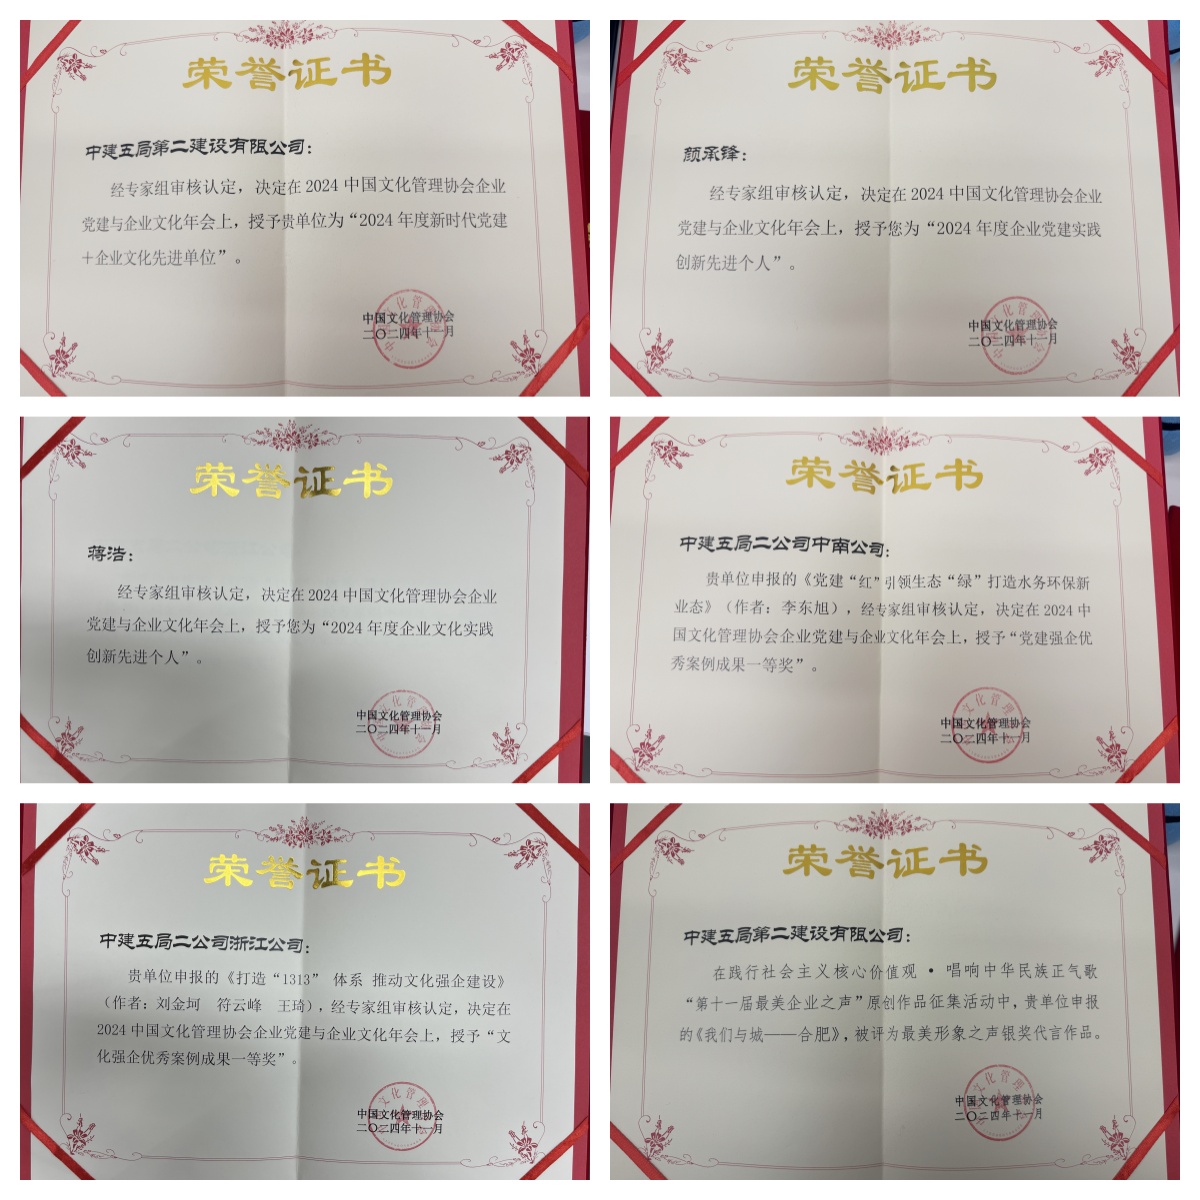 荣誉证书
中建五局第二建设有限公司：
经专家组审核认定，决定在 2024 中国文化管理协会企业
党建与企业文化年会上，授予贵单位为“2024 年度新时代党建
+企业文化先进单位”。
中国文化管理协会
二〇二四年十一月
荣誉证书
颜承锋：
经专家组审核认定，决定在 2024 中国文化管理协会企业
党建与企业文化年会上，授予您为“2024 年度企业党建实践
创新先进个人”。
中国文化管理协会
二〇二四年十一月
荣誉证书
蒋浩：
经专家组审核认定，决定在 2024 中国文化管理协会企业
党建与企业文化年会上，授予您为“2024 年度企业文化实践
创新先进个人”。
中国文化管理协会
二〇二四年十一月
荣誉证书
中建五局二公司中南公司：
贵单位申报的《党建“红”引领生态“绿”打造水务环保新
业态》（作者：李东旭），经专家组审核认定，决定在 2024 中
国文化管理协会企业党建与企业文化年会上，授予“党建强企优
秀案例成果一等奖”。
中国文化管理协会
二〇二四年十一月
荣誉证书
中建五局二公司浙江公司：
贵单位申报的《打造“1313” 体系 推动文化强企建设》
（作者：刘金坷 符云峰 王琦），经专家组审核认定，决定在
2024 中国文化管理协会企业党建与企业文化年会上，授予“文
化强企优秀案例成果一等奖”。
中国文化管理协会
二〇二四年十一月
荣誉证书
中建五局第二建设有限公司：
在践行社会主义核心价值观·唱响中华民族正气歌
“第十一届最美企业之声”原创作品征集活动中，贵单位申报
的《我们与城——合肥》，被评为最美形象之声银奖代言作品。
中国文化管理协会
二〇二四年十一月